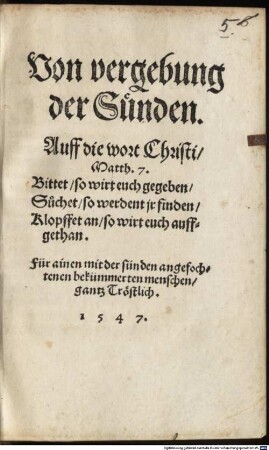 5.
Von vergebung
der Sünden.
Auff die wort Christi/
Matth. 7.
Bittet/so wirt euch gegeben/
Süchet/so werdent jr finden/
Klopffet an/so wirt euch auff-
gethan.
Für ainen mit der sünden angefoch-
tenen bekümmerten menschen/
gantz Tröstlich.
1547.